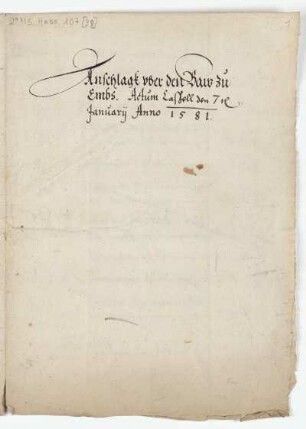 2° Ms. Hass. 107 [38]
Anschlagk vber den Baw zu
Embs. Actum Cassell den 7ten
Januarij Anno 1581.